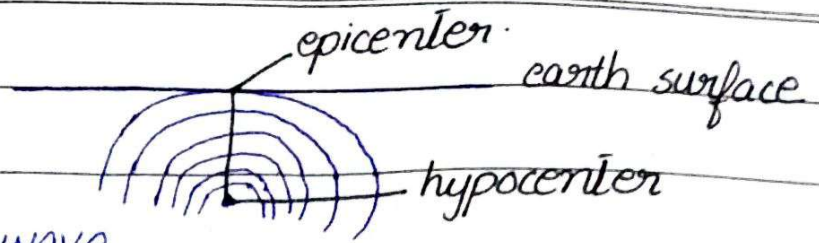 epicenter.
earth surface
hypocenter